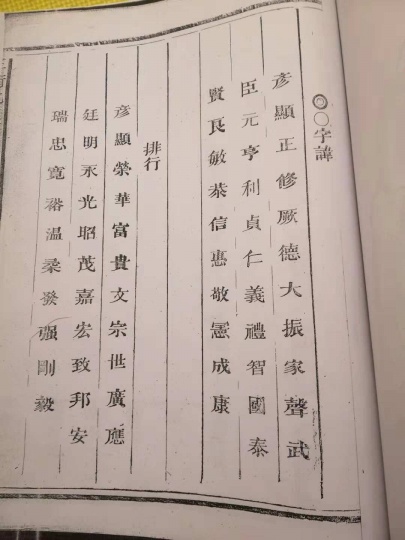 〇〇字諱
彥顯正修厥德大振家聲武
臣元亨利貞仁義禮智國泰
賢良敏恭信惠敬憲成康
排行
彥顯榮華富貴文宗世廣應
廷明永光昭茂嘉宏致邦安
瑞忠寬裕溫柔發强剛毅